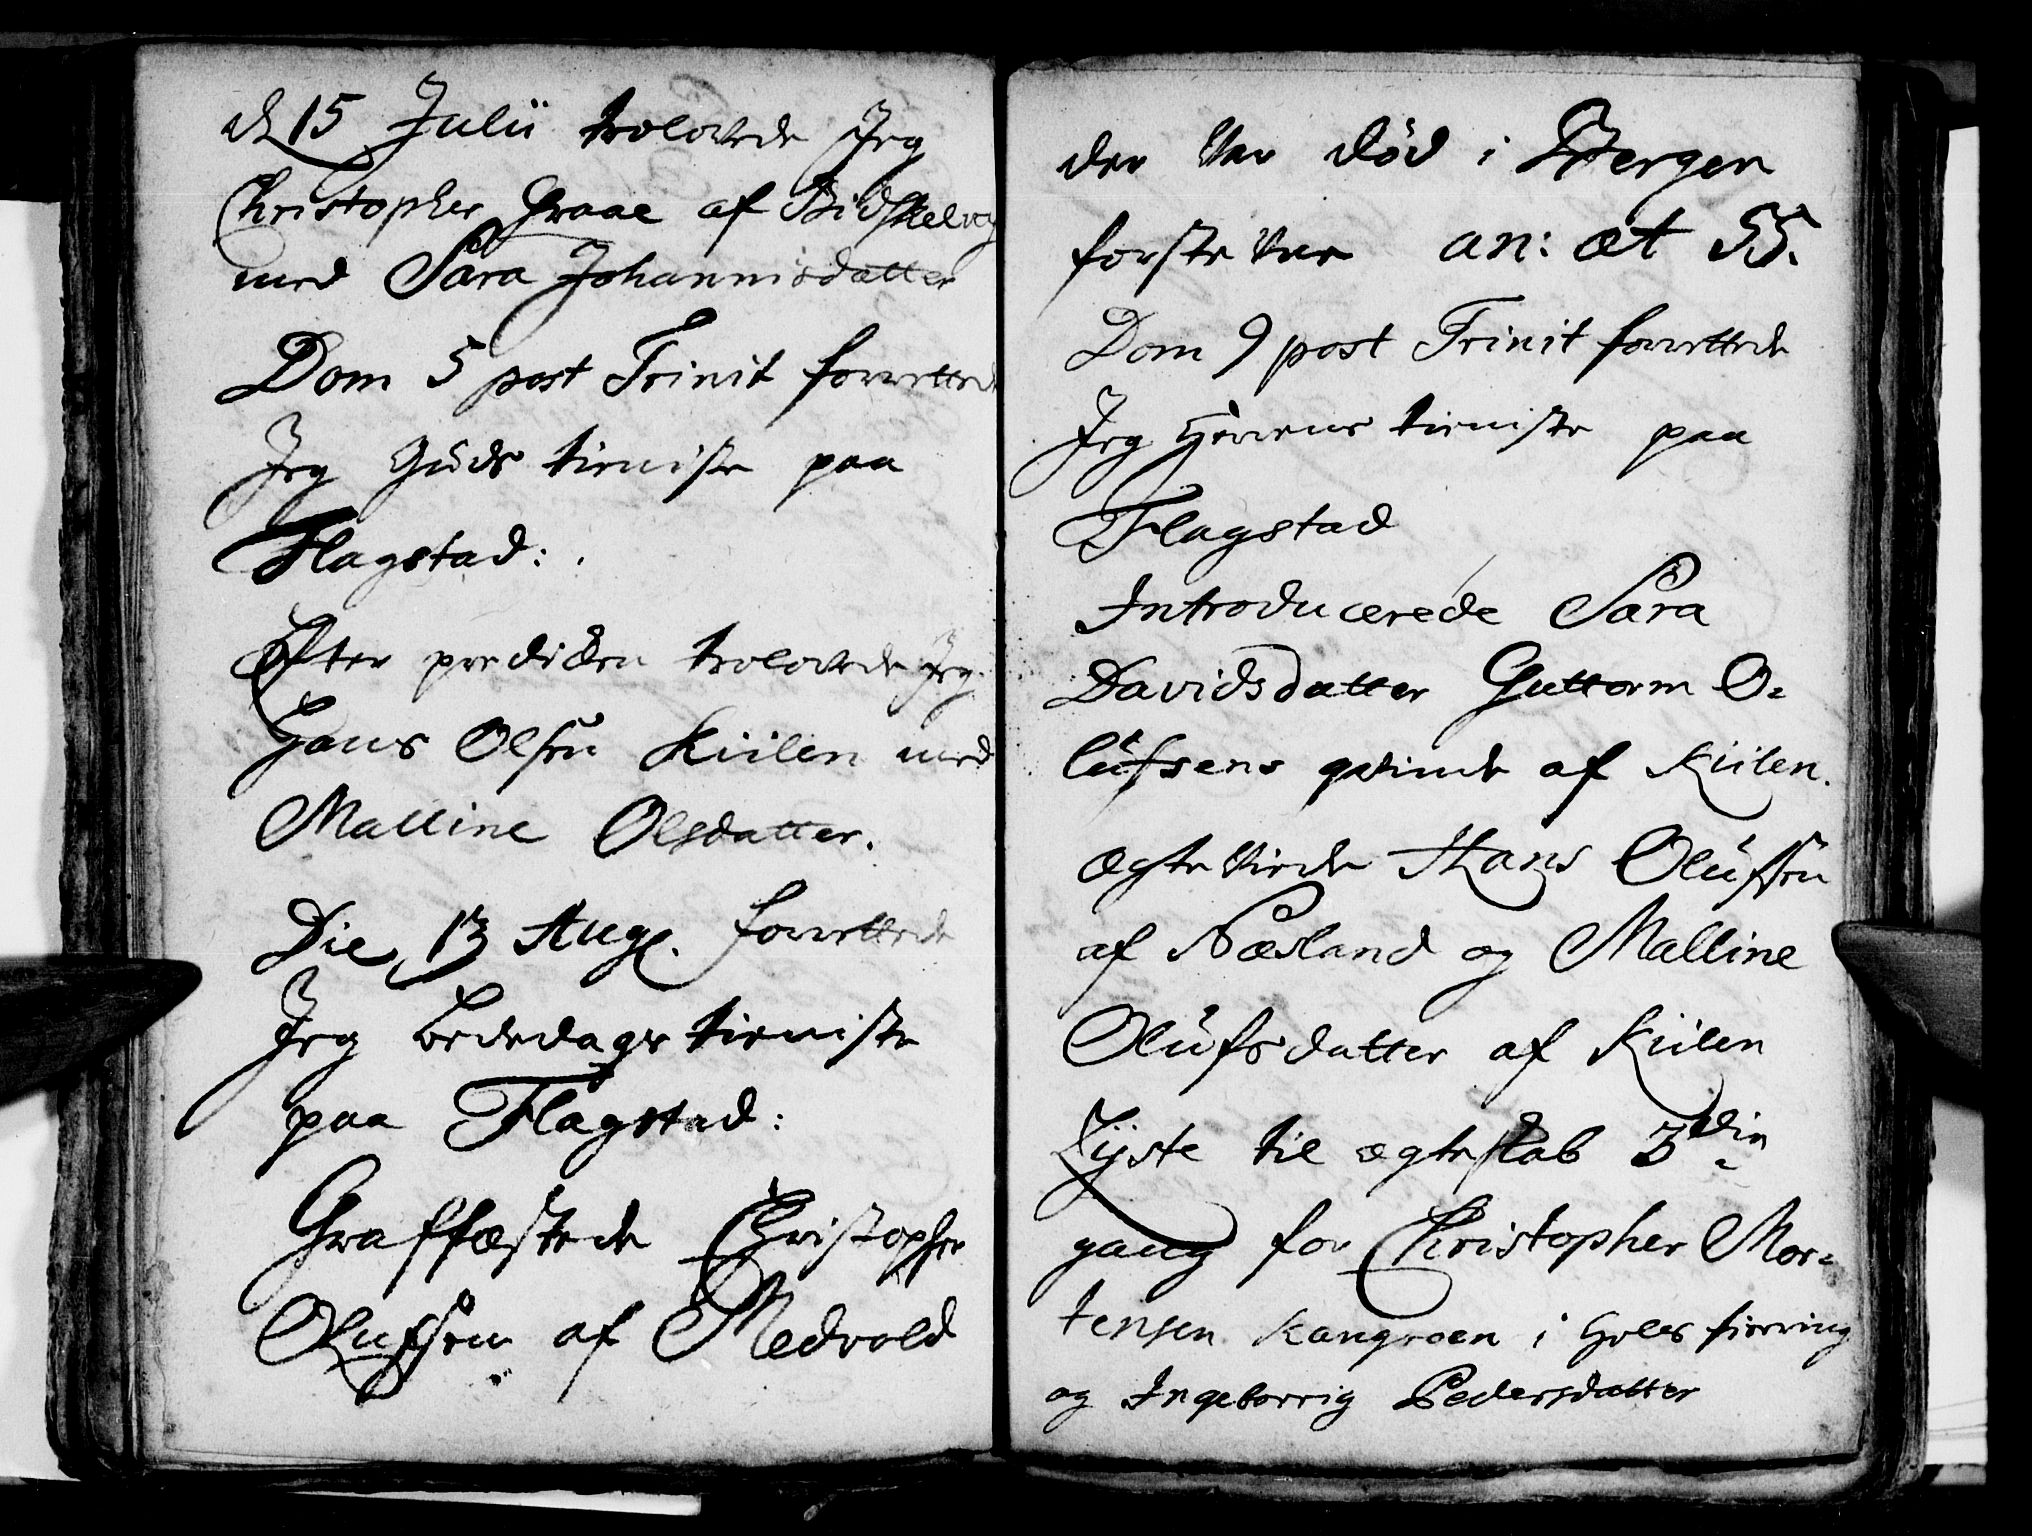 d 15 Julii trolovede Jeg
Christopher Graae af Bidskelvog
med Sara Johannisdatter
Dom 5 post Trinit forrettede
Jeg Guds tieniste paa
Flagstad:
Efter prediken trolovede Jeg
Hans Olsen Kiilen med
Malline Olsdatter.
Die 13 Aug. forrettede
Jeg Bededags tieniste
paa Flagstad:
Graffæstede Christopher
Olufsen af Medvold
der var død i Bergen
forste var an: æt 55.
Dom 9 post Trinit forrettede
Jeg Herrens tieniste paa
Flagstad
Introducerede Sara
Davidsdatter Guttorm O=
lufsens qvinde af Kiilen.
ægteviede Hans Olufsen
af Næsland og Malline
Olufsdatter af Kiilen
Lyste til ægteskab 3die
gang for Christopher Mor=
tensen Kangroen i Hols fierring
og Ingeborrig Pedersdatter